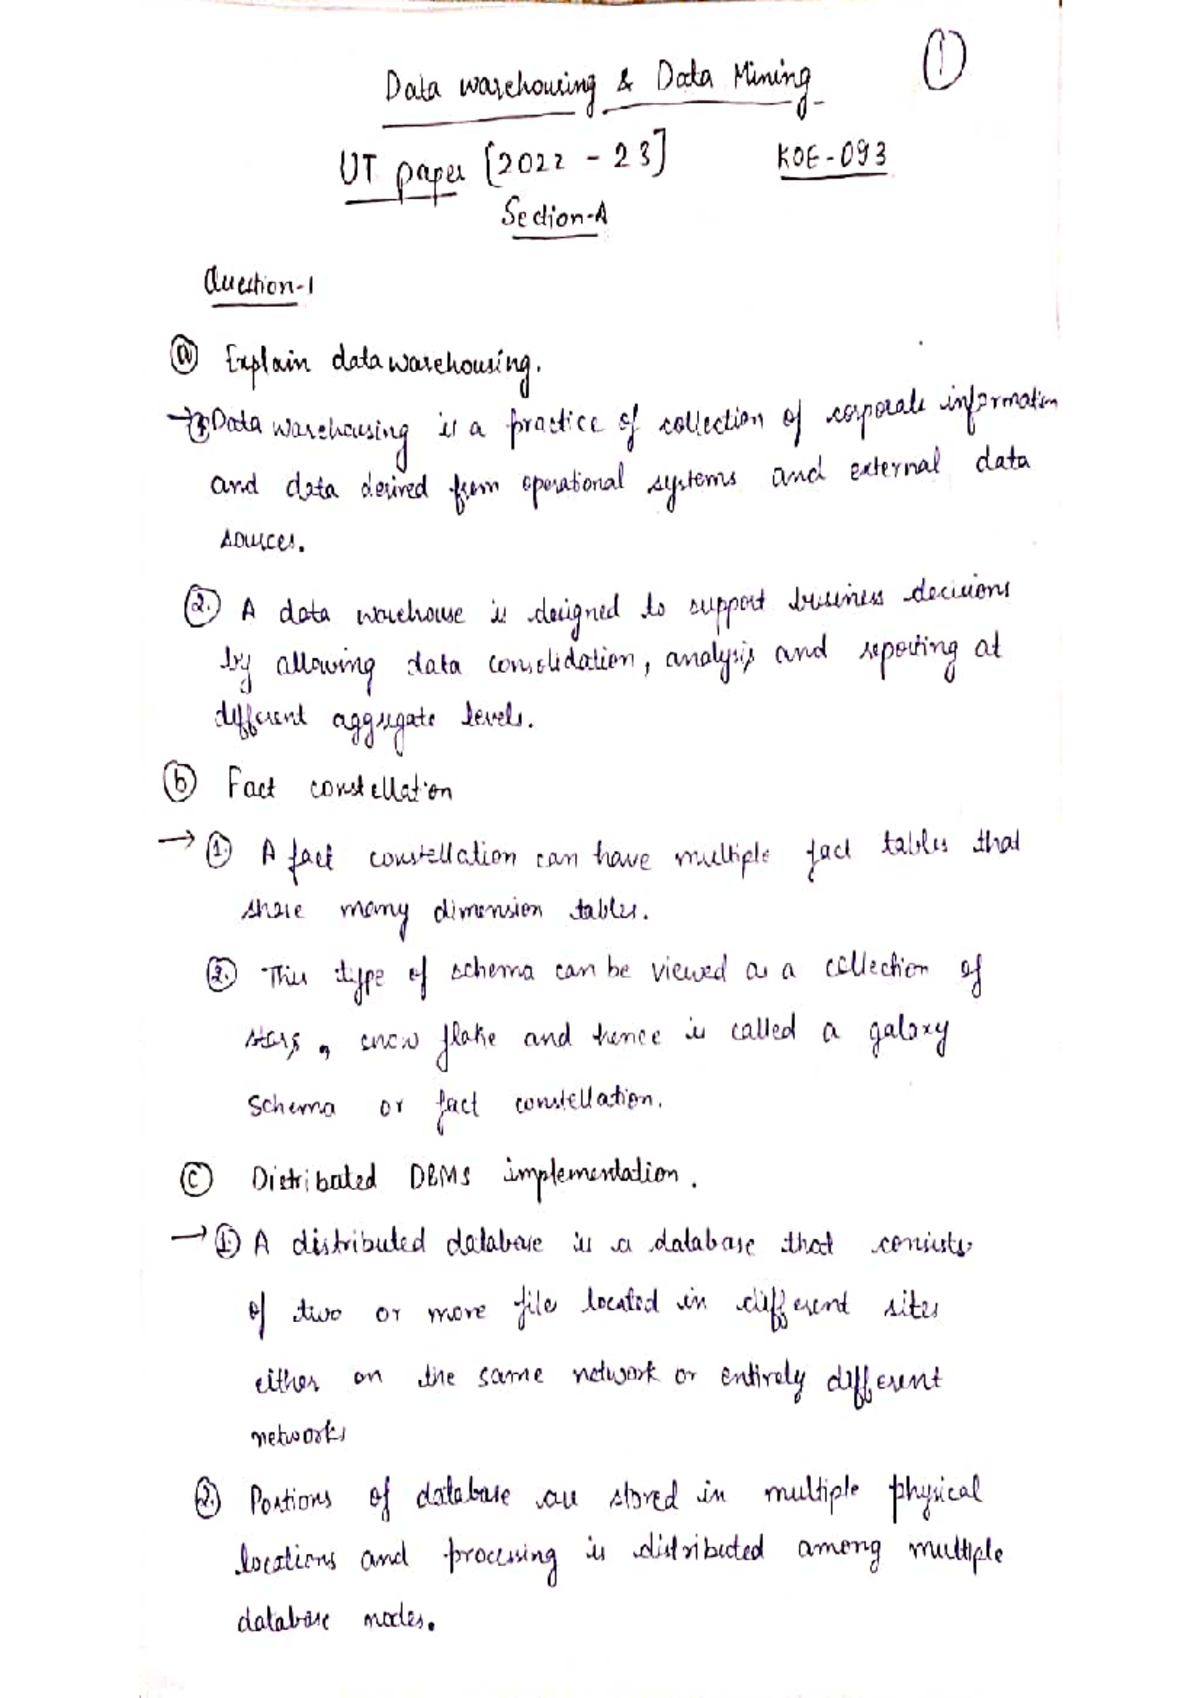 ①
Data warehousing & Data Mining
UT paper [2022 - 23] KOE-093
Section-A
Question-1
ⓐ Explain data warehousing.
→ ① Data warehousing is a practice of collection of corporate information
and data derived from operational systems and external data
sources.
② A data warehouse is designed to support business decisions
by allowing data consolidation, analysis and reporting at
different aggregate levels.
ⓑ Fact constellation
→ ① A fact constellation can have multiple fact tables that
share many dimension tables.
② This type of schema can be viewed as a collection of
stars, snow flake and hence is called a galaxy
schema or fact constellation.
ⓒ Distributed DBMS implementation.
→ ① A distributed database is a database that consists
of two or more file located in different sites
either on the same network or entirely different
networks
② Portions of database are stored in multiple physical
locations and processing is distributed among multiple
database nodes.